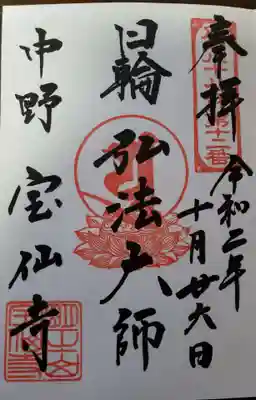 奉拝
第十二番
令和二年
十月廿六日
日輪 弘法大師
中野 宝仙寺